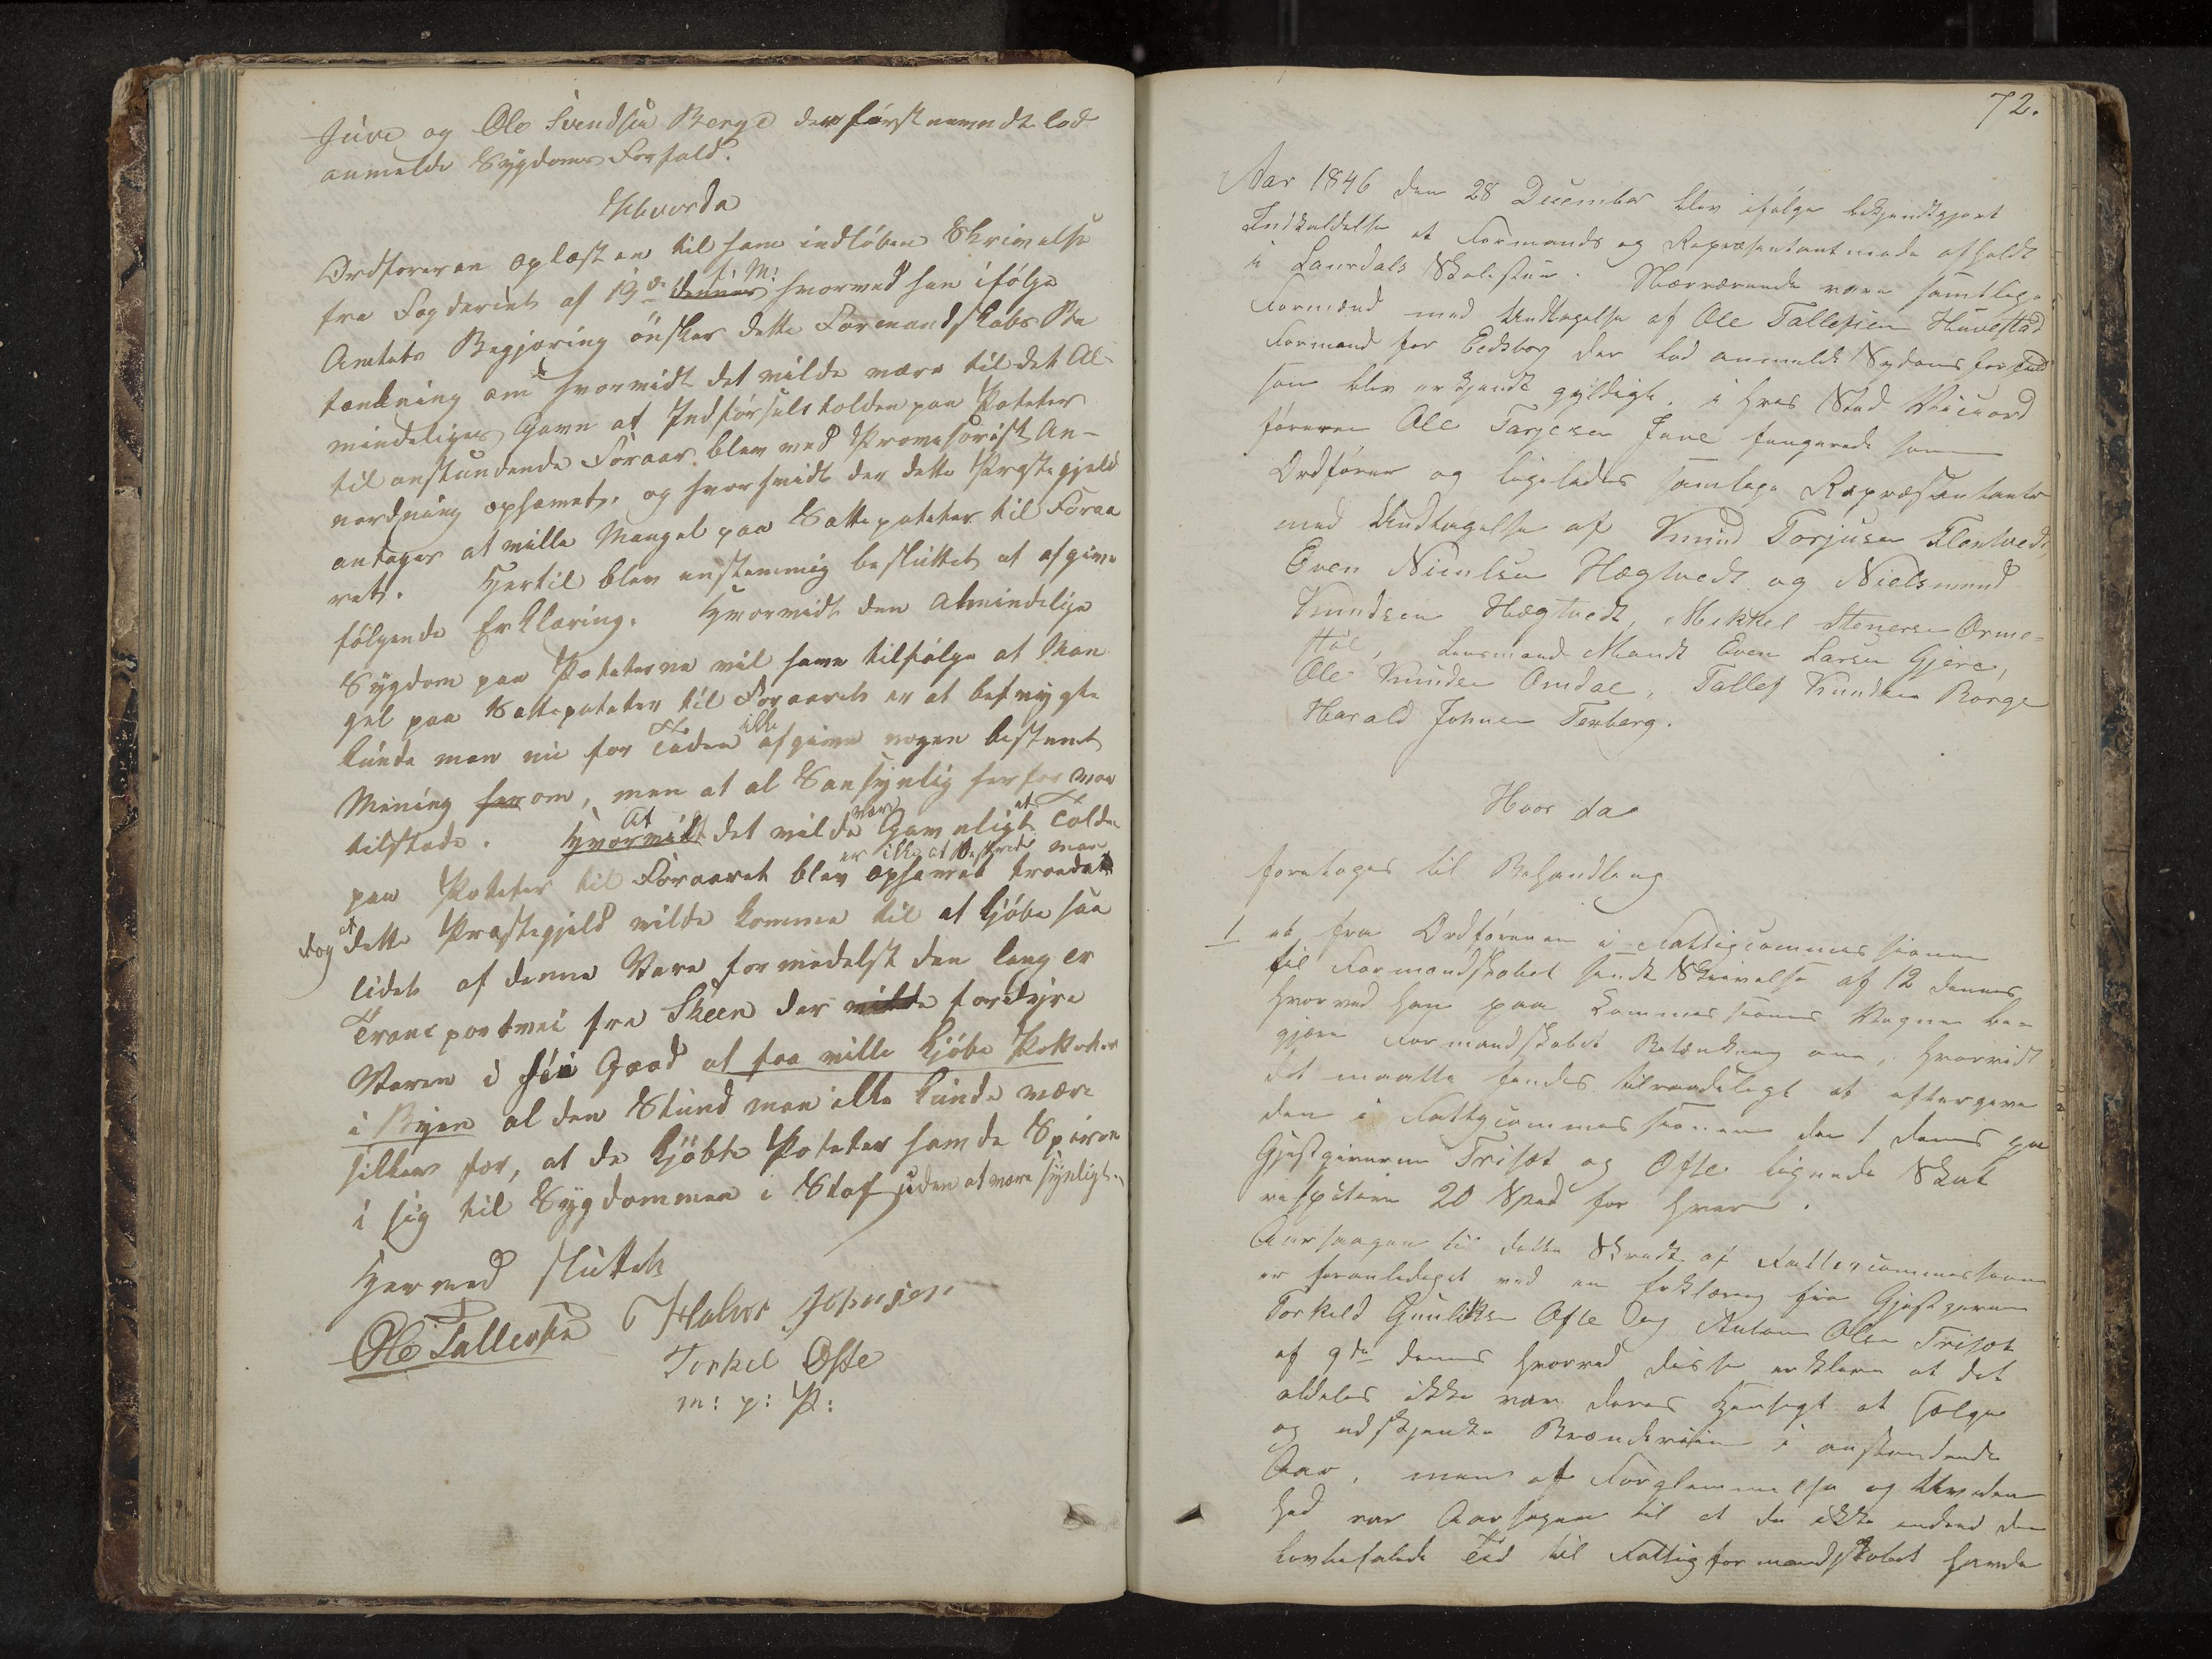 Juve og Ole Svendsen Berge der förstnævndte lod
anmelde Sygdoms Forfald.
Hvorda
Ordföreren oplæst en til ham indlöben Skrivelse
fra Fogderiet af 19de dennes f: M: hvorved han ifölge
Amtets Begjæring önsker dette Formandskabs Be
tænkning om hvorvidt det vilde være til det Al-
mindeliges Gavn at Indförselstolden paa Poteter
til anstundende Foraar blev ved Provisorisk An-
ordning ophævet, og hvorvidt der dette Præstegjeld
antages at ville Mangel paa Sættepoteter til Foraa
ret. Hertil blev enstemmig besluttet at afgive
fölgende Erklæring. Hvorvidt den almindelige
Sygdom paa Poteterne vil have tilfölge at Man
gel paa Sættepoteter til Foraaret er at befrygte
kunde man nu for Tiden ikke afgive nogen bestemt
Mening her om, men at al Sansynlig herfor var
tilstæde. Hvorvidt At det vilde være Gavnligt at Tolden
paa Poteter til Foraaret blev ophævet er ikke at bestride man troede
dog at dette Præstegjeld vilde komme til at kjöbe saa
lidet af denne Vare formedelst den lang er
Transportvei fra Skeen der vilde fordyre
Varen i höi Grad at faa ville kjöbe Poteter
i Byen al den Stund man ikke kunde være
sikker for, at de kjöbte Poteter havde Spiren
i sig til Sygdommen i Staf uden at være synligt.
Hermed sluttet
Ole Tallevsen Halvor Johnsen
Torkel Ofte
m: p: P:
72.
Aar 1846 den 28 December blev ifölge bekjendtgjort
Indkaldelse et Formands og Repræsentantmøde afholdt
i Laurdals Skolestue. Nærværende vare samtlige
Formænd med Undtagelse af Ole Tallefsen Huvestad
Formand for Eidsborg der lod anmelde Sydoms forfald
som blev erkjendt gyldigt, i hvis Sted Viceord
föreren Ole Tarjesen Juve fungerede som
Ordförer og ligeledes samtlige Repræsentanter
med Undtagelse af Knud Torjusen Flaatvedt
Even Nicolsen Hægtvedt og Nielsmund
Knudsen Hægtvedt, Mikkel Stenersen Orme-
stöl, Lensmand Mandt Even Larsen Gjere,
Ole Knudsen Omdal, Tallef Knudsen Borge
Harald Johnsen Tenberg.
Hvor da
foretoges til Behandling
1 et fra Ordföreren i Fattigcommissionen
til Formandskabet sendt Skrivelse af 12 dennes
hvorved han paa Commissionens Vegne be-
gjære Formandskabet Betænkning om, hvorvidt
det maatte findes tilraadeligt at eftergive
den i Fattigcommissionen den 1 dennes paa
Gjestgiverne Trisæt og Ofte lignede Skat
respitive 20 Spd for hver.
Aarsaagen til dette Skridt af Fattigcommissionen
er foranlediget ved en Erklæring fra Gjestgiverne
Torkild Gunliksen Ofte og Anton Olsen Trisæt
af 9de dennes hvorved disse erklære at det
aldeles ikke var deres Hensigt at sælge
og udskjenke Brændeviin i anstundende
Aar, men at Forglemmelse og Uviden
hed var Aarsagen til at de ikke inden den
lovbefalede Tid til Fattigformandskabet havde